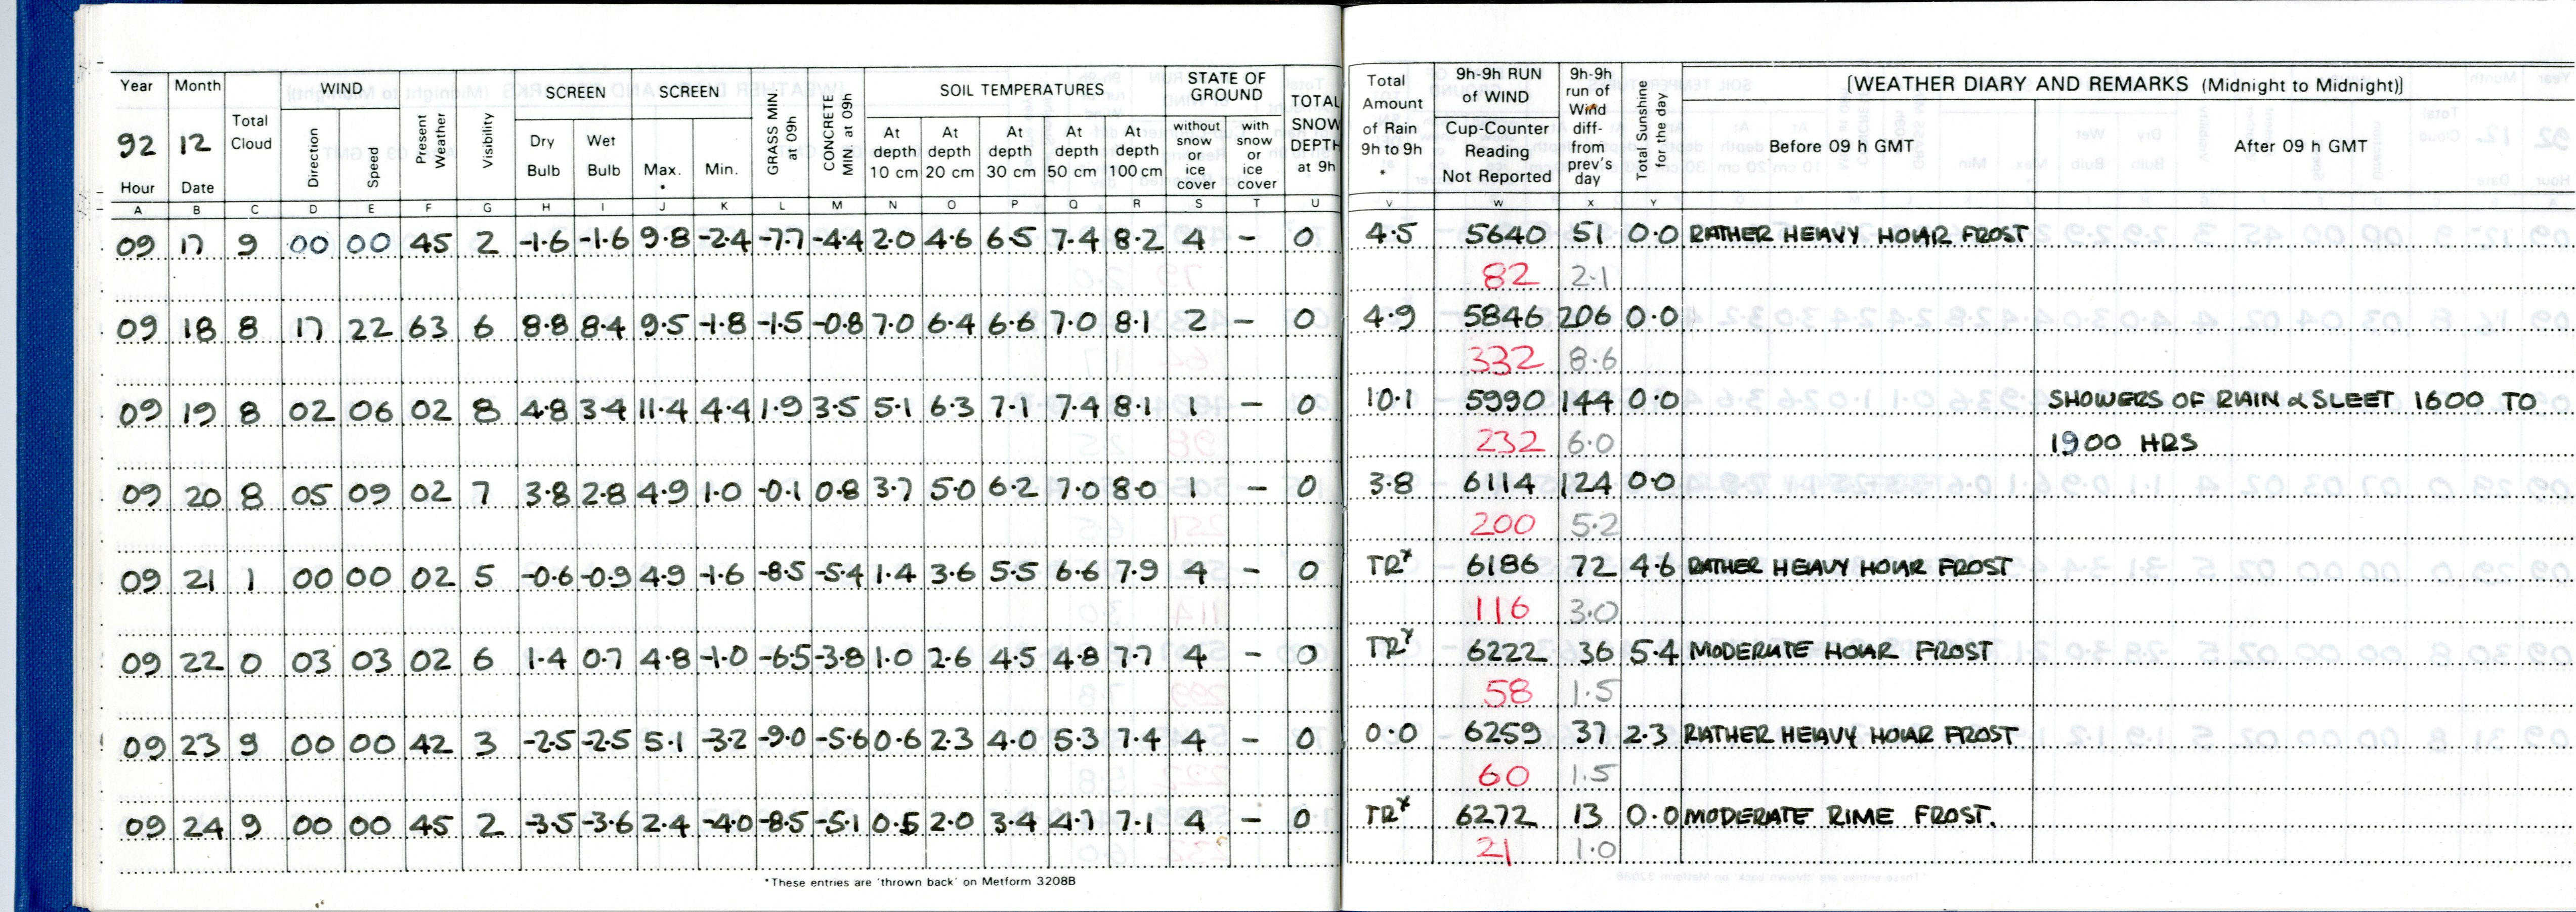 Year Month WIND SCREEN SCREEN SOIL TEMPERATURES STATE OF GROUND
92 12 Total Cloud Direction Speed Present Weather Visibility Dry Bulb Wet Bulb Max. • Min. GRASS MIN. at 09h CONCRETE MIN at 09h At depth 10 cm At depth 20 cm At depth 30 cm At depth 50 cm At depth 100 cm without snow or ice cover with snow or ice cover TOTAL SNOW DEPTH at 9h
Hour Date
A B C D E F G H I J K L M N O P Q R S T U
Total Amount of Rain 9h to 9h • 9h-9h RUN of WIND Cup-Counter Reading Not Reported 9h-9h run of Wind diff-from prev's day Total Sunshine for the day [WEATHER DIARY AND REMARKS (Midnight to Midnight)]
Before 09 h GMT After 09 h GMT
V W X Y
09 17 9 00 00 45 2 -1.6 -1.6 9.8 -2.4 -7.7 -4.4 2.0 4.6 6.5 7.4 8.2 4 – 0 4.5 5640 51 0.0 RATHER HEAVY HOAR FROST
82 2.1
09 18 8 17 22 63 6 8.8 8.4 9.5 -1.8 -1.5 -0.8 7.0 6.4 6.6 7.0 8.1 2 – 0 4.9 5846 206 0.0
332 8.6
09 19 8 02 06 02 8 4.8 3.4 11.4 4.4 1.9 3.5 5.1 6.3 7.1 7.4 8.1 1 – 0 10.1 5990 144 0.0 SHOWERS OF RAIN & SLEET 1600 TO
232 6.0 1900 HRS
09 20 8 05 09 02 7 3.8 2.8 4.9 1.0 -0.1 0.8 3.7 5.0 6.2 7.0 8.0 1 – 0 3.8 6114 124 0.0
200 5.2
09 21 1 00 00 02 5 -0.6 -0.9 4.9 -1.6 -8.5 -5.4 1.4 3.6 5.5 6.6 7.9 4 – 0 TR* 6186 72 4.6 RATHER HEAVY HOAR FROST
116 3.0
09 22 0 03 03 02 6 1.4 0.7 4.8 -1.0 -6.5 -3.8 1.0 2.6 4.5 4.8 7.7 4 – 0 TR* 6222 36 5.4 MODERATE HOAR FROST
58 1.5
09 23 9 00 00 42 3 -2.5 -2.5 5.1 -3.2 -9.0 -5.6 0.6 2.3 4.0 5.3 7.4 4 – 0 0.0 6259 37 2.3 RATHER HEAVY HOAR FROST
60 1.5
09 24 9 00 00 45 2 -3.5 -3.6 2.4 -4.0 -8.5 -5.1 0.5 2.0 3.4 4.7 7.1 4 – 0 TR* 6272 13 0.0 MODERATE RIME FROST.
21 1.0
*These entries are 'thrown back' on Metform 3208B